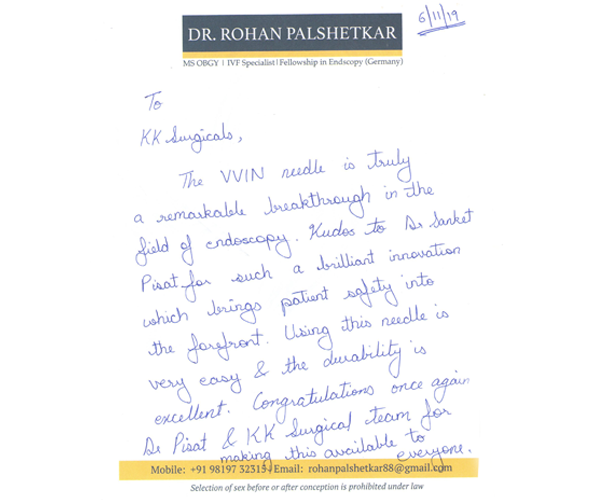 DR. ROHAN PALSHETKAR
6/11/19
MS OBGY | IVF Specialist | Fellowship in Endscopy (Germany)
To
KK Surgicals,
The VVIN needle is truly
a remarkable breakthrough in the
field of endoscopy. Kudos to Dr Sanket
Pisat for such a brilliant innovation
which brings patient safety into
the forefront. Using this needle is
very easy & the durability is
excellent. Congratulations once again
Dr Pisat & KK Surgical team for
making this available to
everyone.
Mobile: +91 98197 32315 | Email: rohanpalshetkar88@gmail.com
Selection of sex before or after conception is prohibited under law